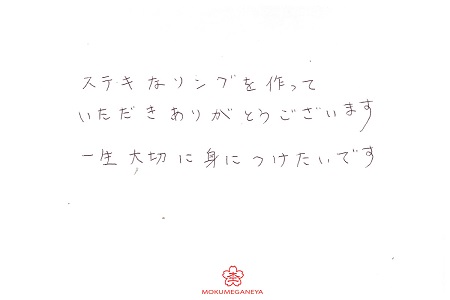 ステキなリングを作って
いただきありがとうございます
一生大切に身につけたいです
MOKUMEGANEYA